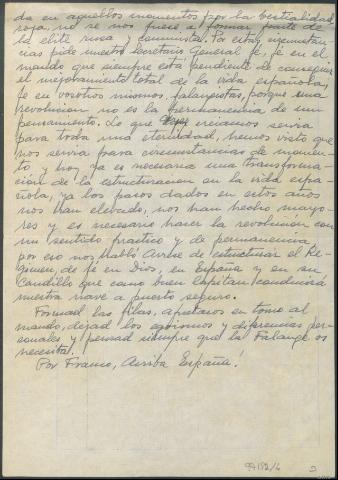 da en aquellos momentos por la bestialidad
roja, no se nos fuese a formar parte de
la elite rusa y comunista. Por estas circunstan-
cias pide nuestro Secretario General fe, fe en el
mando que siempre está pendiente de conseguir
el mejoramiento total de la vida española,
fe en vosotros mismos, falangistas, porque una
revolucion no es la permanencia de un
pensamiento. Lo que creiamos serviria
para toda una eternidad, hemos visto que
nos servia para circunstancias de momen-
to y hoy ya es necesaria una transforma-
ción de la estructuracion en la vida espa-
ñola, ya los pasos dados en estos años
nos han elevado, nos han hecho mayo-
res y es necesario hacer la revolución con
un sentido practico y de permanencia
por eso nos habló Arrese de estructurar el Re-
gimen, de fe en Dios, en España y en su
Caudillo que como buen Capitan conducirá
nuestra nave a puerto seguro.
Formad las filas, apretaros en torno al
mando, dejad los egoismos y diferencias per-
sonales, y pensad siempre que la Falange os
necesita.
Por Franco, Arriba España!